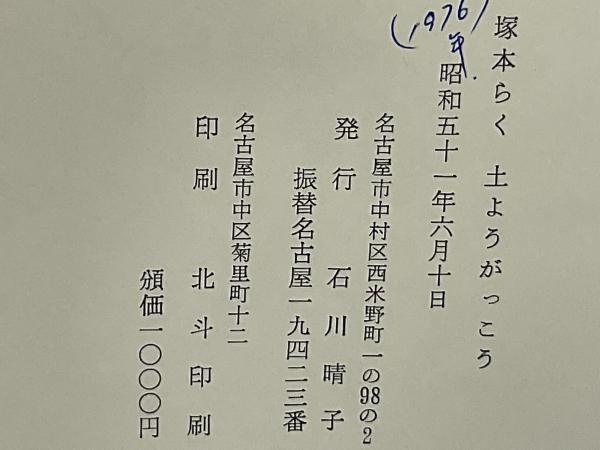 塚本らく 土ようがっこう
(1976年)
昭和五十一年六月十日
名古屋市中村区西米野町一の98の2
発行 石川晴子
振替名古屋一九四二三番
名古屋市中区菊里町十二
印刷 北斗印刷
頒価一〇〇〇円